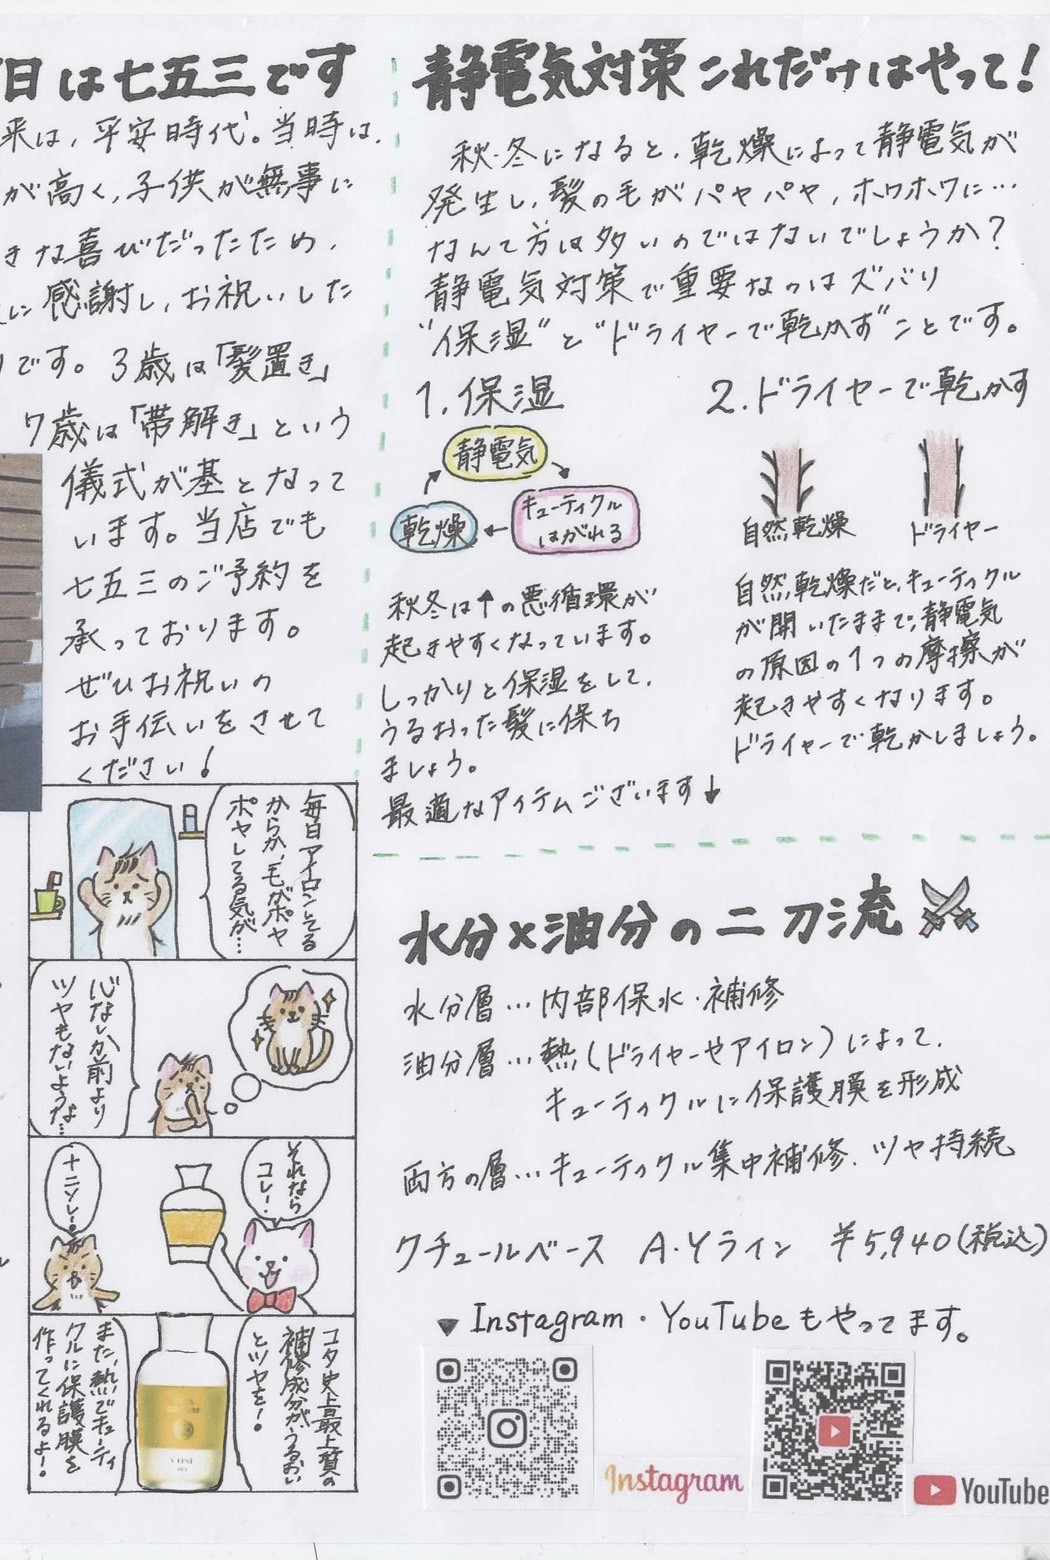 日は七五三です
来は、平安時代。当時は、
が高く、子供が無事に
きな喜びだったため、
に感謝し、お祝いした
です。3歳は「髪置き」
7歳は「帯解き」という
儀式が基となって
います。当店でも
七五三のご予約を
承っております。
ぜひお祝いの
お手伝いをさせて
ください!
静電気対策これだけはやって!
秋・冬になると、乾燥によって静電気が
発生し、髪の毛がパヤパヤ、ホワホワに…
なんて方は多いのではないでしょうか?
静電気対策で重要なのはズバリ
"保湿"と"ドライヤーで乾かす"ことです。
1.保湿
静電気
キューティクル
はがれる
乾燥
秋冬は↑の悪循環が
起きやすくなっています。
しっかりと保湿をして、
うるおった髪に保ち
ましょう。
最適なアイテムございます↓
2.ドライヤーで乾かす
自然乾燥
ドライヤー
自然乾燥だと、キューティクル
が開いたままで、静電気
の原因の1つの摩擦が
起きやすくなります。
ドライヤーで乾かしましょう。
毎日アイロンしてる
からか、毛がポヤ
ポヤしてる気が…
心なしか前より
ツヤもないような…
それなら
コレ!
ナニソレ!
コタ史上最上質の
補修成分が、うるおい
とツヤを!
また、熱でキューティ
クルに保護膜を
作ってくれるよ!
水分×油分の二刀流
水分層…内部保水・補修
油分層…熱(ドライヤーやアイロン)によって、
キューティクルに保護膜を形成
両方の層…キューティクル集中補修、ツヤ持続
クチュールベース A・Yライン ¥5,940(税込)
▼Instagram・YouTubeもやってます。
Instagram
YouTube